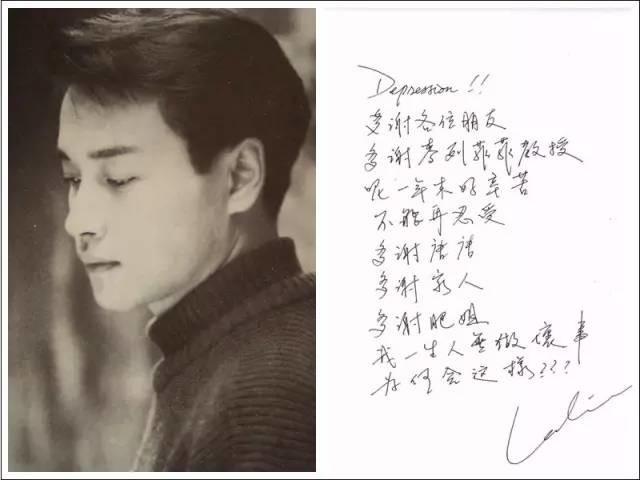 Depression!!
多谢各位朋友
多谢麦列菲菲教授
呢一年来好辛苦
不能再忍受
多谢唐唐
多谢家人
多谢肥姐
我一生人无做坏事
为何会这样???
Leslie